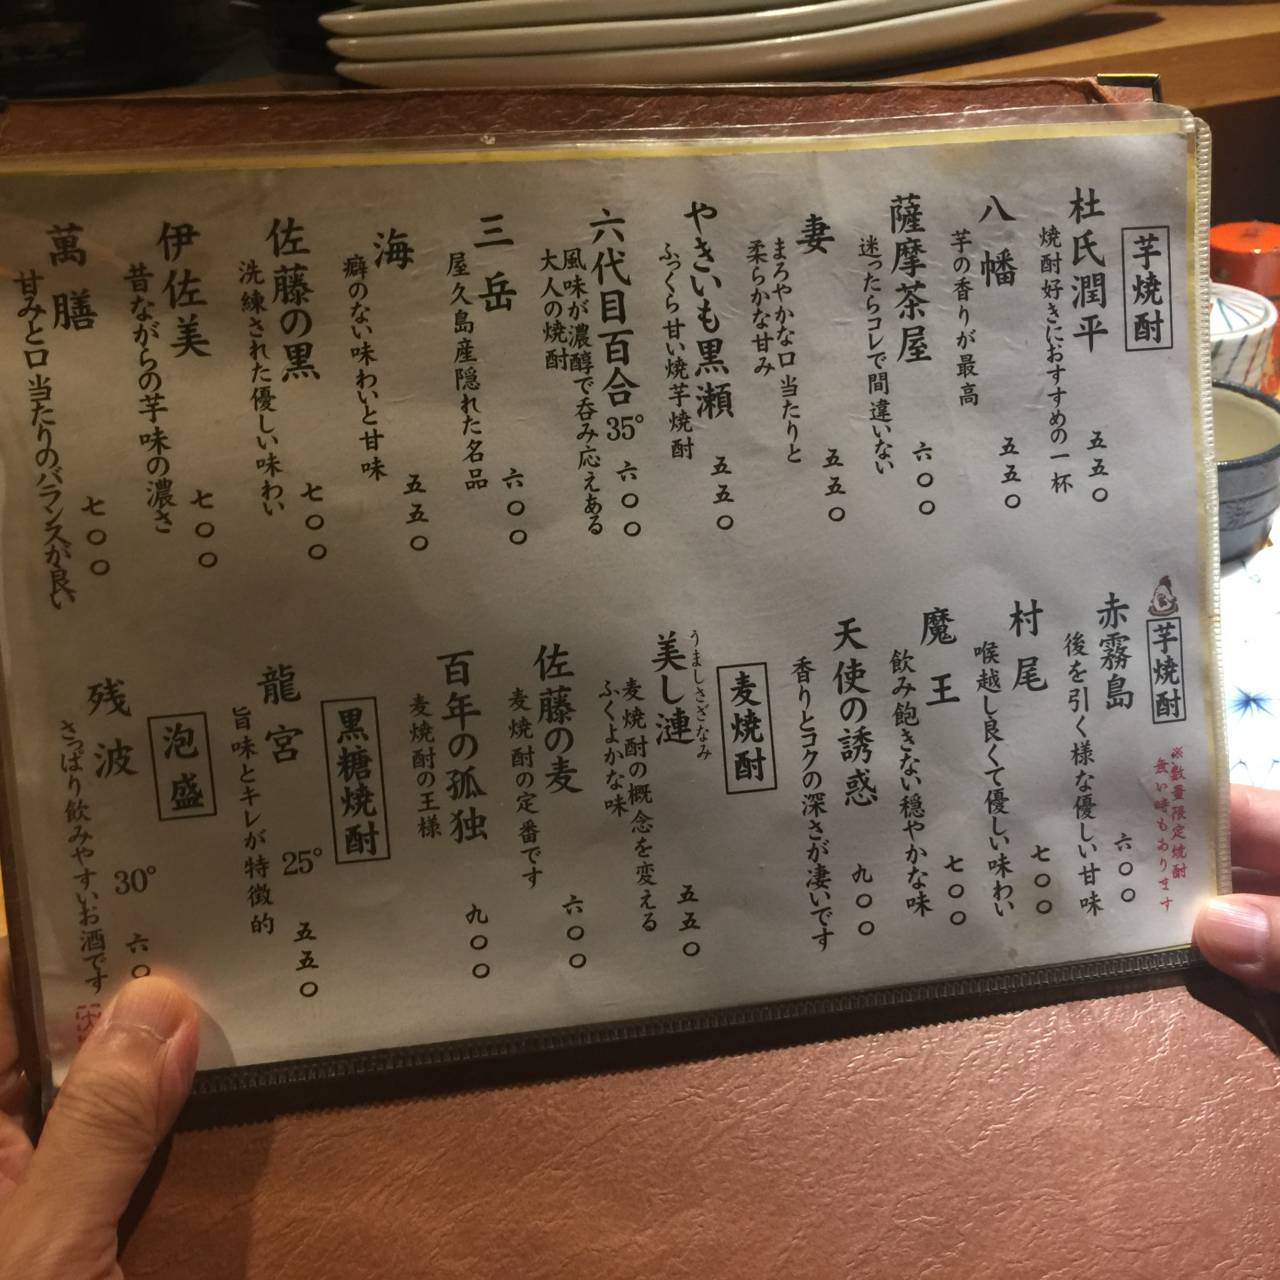 芋焼酎
杜氏潤平
焼酎好きにおすすめの一杯
五五〇
八幡
芋の香りが最高
五五〇
薩摩茶屋
迷ったらコレで間違いない
六〇〇
妻
まろやかな口当たりと
柔らかな甘み
五五〇
やきいも黒瀬
ふっくら甘い焼芋焼酎
五五〇
六代目百合 35°
風味が濃醇で呑み応えある
大人の焼酎
六〇〇
三岳
屋久島産隠れた名品
六〇〇
海
癖のない味わいと甘味
五五〇
佐藤の黒
洗練された優しい味わい
七〇〇
伊佐美
昔ながらの芋味の濃さ
七〇〇
萬膳
甘みと口当たりのバランスが良い
七〇〇
芋焼酎
※数量限定焼酎
無い時もあります
赤霧島
後を引く様な優しい甘味
六〇〇
村尾
喉越し良くて優しい味わい
七〇〇
魔王
飲み飽きない穏やかな味
七〇〇
天使の誘惑
香りとコクの深さが凄いです
九〇〇
麦焼酎
うましさざなみ
美し漣
麦焼酎の概念を変える
ふくよかな味
五五〇
佐藤の麦
麦焼酎の定番です
六〇〇
百年の孤独
麦焼酎の王様
九〇〇
黒糖焼酎
龍宮 25°
旨味とキレが特徴的
五五〇
泡盛
残波 30°
さっぱり飲みやすいお酒です
六〇